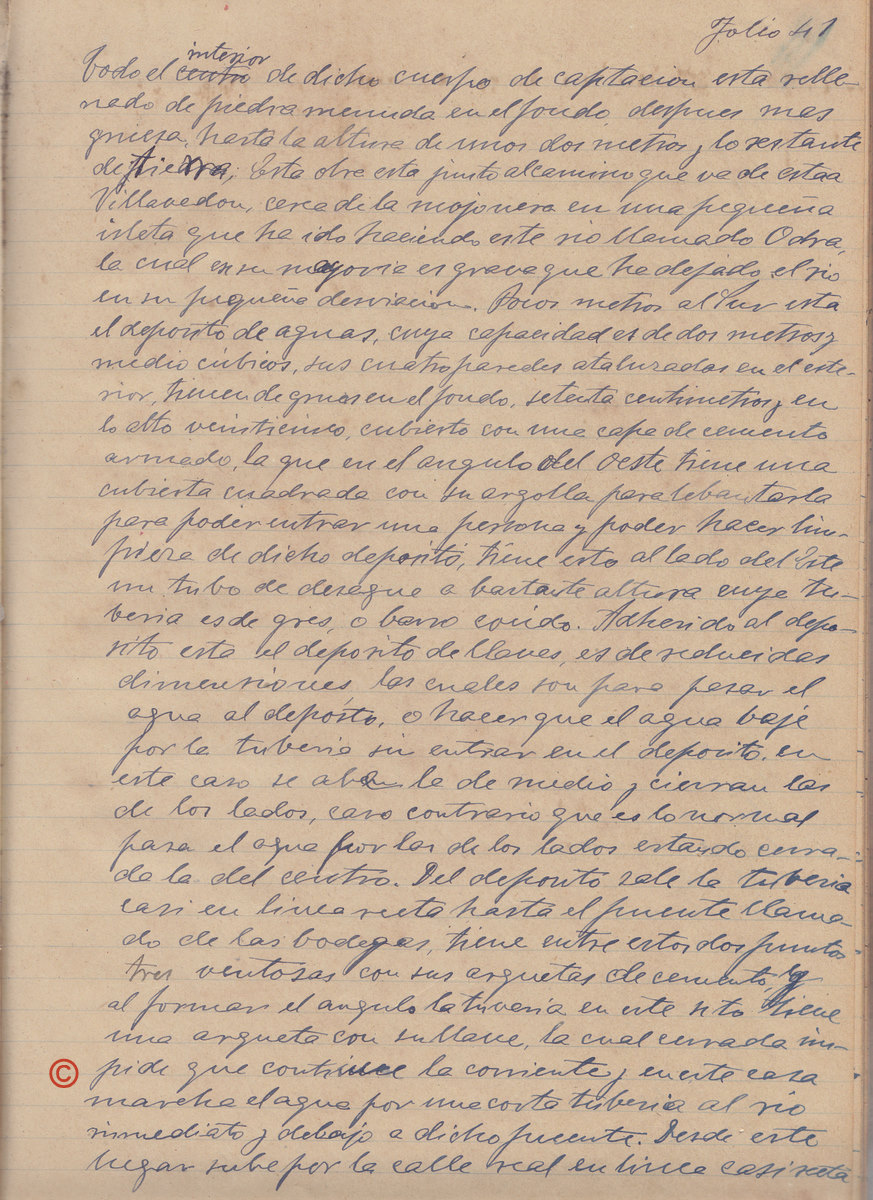 Folio 41
interior
todo el centro de dicho cuerpo de captacion esta relle-
nado de piedra menuda en el fondo, despues mas
gruesa, hasta la altura de unos dos metros y lo restante
de tierra; Esta obra esta junto al camino que va de esta a
Villavedon, cerca de la mojonera en una pequeña
isleta que ha ido haciendo este rio llamado Odra,
la cual en su mayoria es grava que ha dejado el rio
en su pequeña desviacion. Pocos metros al Sur esta
el deposito de aguas, cuya capacidad es de dos metros y
medio cúbicos, sus cuatro paredes ataluzadas en el este-
rior, tienen de grueso en el fondo, setenta centimetros y en
lo alto veinticinco, cubierto con una capa de cemento
armado, la que en el angulo del Oeste tiene una
cubierta cuadrada con su argolla para lebantarla
para poder entrar una persona y poder hacer lim-
pieza de dicho deposito, tiene esto al lado del Este
un tubo de desague a bastante altura cuya tu-
beria es de gres, o barro cocido. Adherido al depo-
sito esta el deposito de llaves, es de reducidas
dimensiones, las cuales son para pasar el
agua al deposito, o hacer que el agua baje
por la tuberia sin entrar en el deposito. en
este caso se abre la de medio y cierran las
de los lados, caso contrario que es lo normal
pasa el agua por las de los lados estando cerra-
da la del centro. Del deposito sale la tuberia
casi en linea recta hasta el puente llama-
do de las bodegas, tiene entre estos dos puntos
tres ventosas con sus arquetas de cemento, y
al formar el angulo la tuveria en este sito tiene
una arqueta con su llave, la cual cerrada im-
pide que continue la corriente y en este caso
marcha el agua por una corta tuberia al rio
inmediato y debajo a dicho puente. Desde este
lugar sube por la calle real en linea casi recta
©